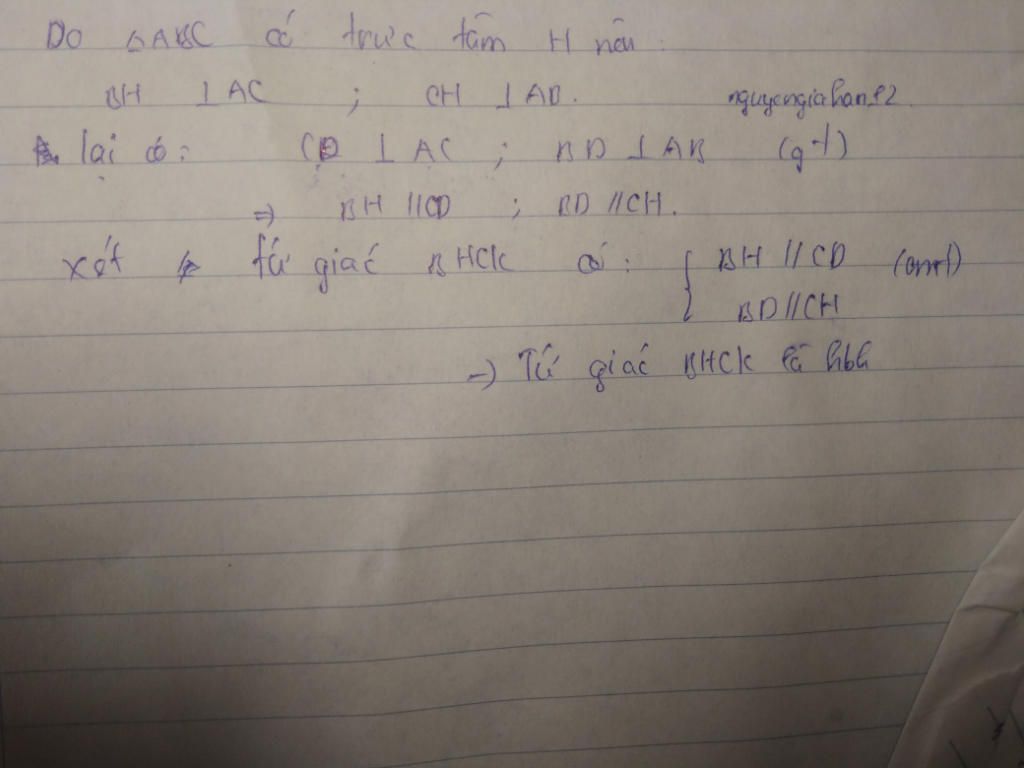 Do △ABC có trực tâm H nên:
BH ⊥ AC ; CH ⊥ AD. nguyengiahan12
lại có: CD ⊥ AC ; BD ⊥ AB (gt)
⇒ BH // CD ; BD // CH.
xét tứ giác BHCK có: { BH // CD (cmt)
BD // CH
→ Tứ giác BHCK là hbh